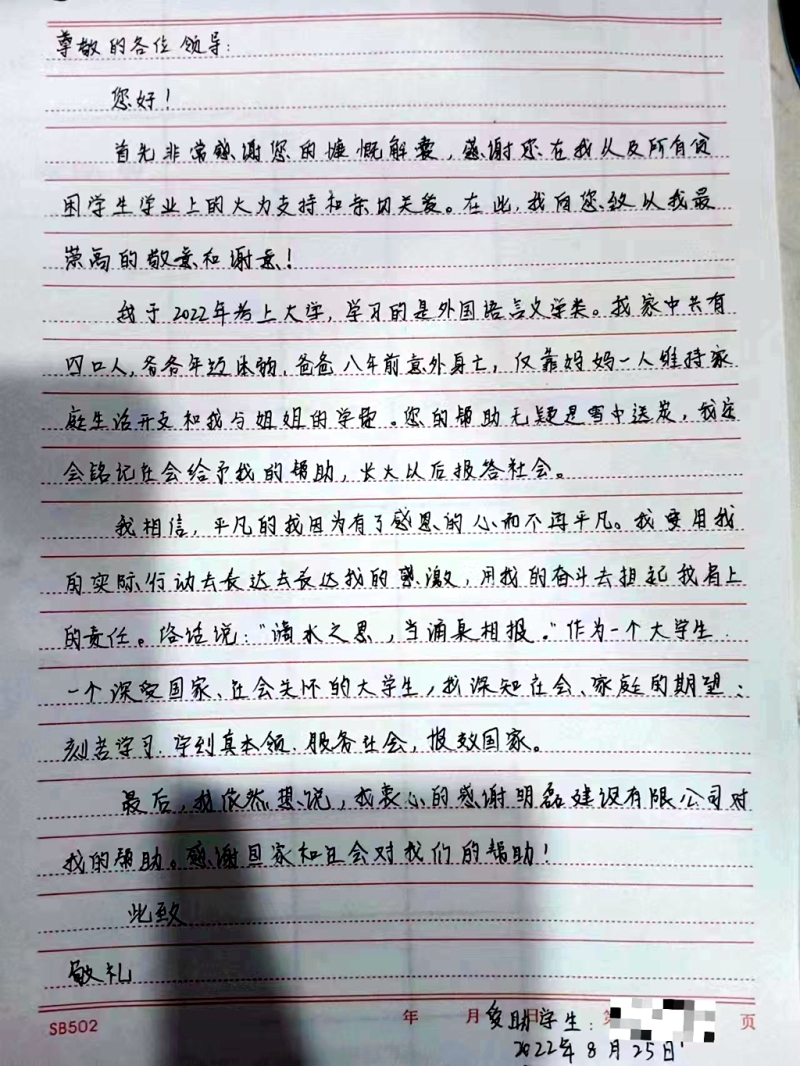 尊敬的各位领导:
您好!
首先非常感谢您的慷慨解囊,感谢您在我以及所有贫
困学生学业上的大力支持和亲切关爱。在此,我向您致以我最
崇高的敬意和谢意!
我于2022年考上大学,学习的是外国语言文学类。我家中共有
四口人,爷爷年迈体弱,爸爸八年前意外身亡,仅靠妈妈一人维持家
庭生活开支和我与姐姐的学费。您的帮助无疑是雪中送炭,我定
会铭记社会给予我的帮助,长大以后报答社会。
我相信,平凡的我因为有了感恩的心而不再平凡。我要用我
的实际行动去表达去表达我的感激,用我的奋斗去担起我肩上
的责任。俗话说:“滴水之恩,当涌泉相报。”作为一个大学生
一个深受国家、社会关怀的大学生,我深知社会、家庭的期望:
刻苦学习.学到真本领.服务社会,报效国家。
最后,我依然想说,我衷心的感谢明磊建设有限公司对
我的帮助。感谢国家和社会对我们的帮助!
此致
敬礼
SB502 年 月 日 第 页
受助学生:
2022年8月25日